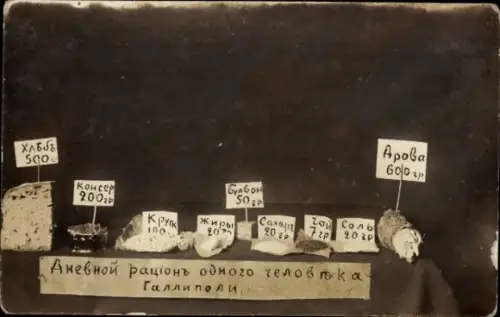 Хлѣбъ
500 гр.
Консер
200 гр
Крупа
Жиры
20 гр
Бульон
50 гр
Сахаръ
20 гр
Чай
7 гр
Соль
20 гр
Дрова
600 гр
Дневной раціонъ одного человѣка
Галлиполи.